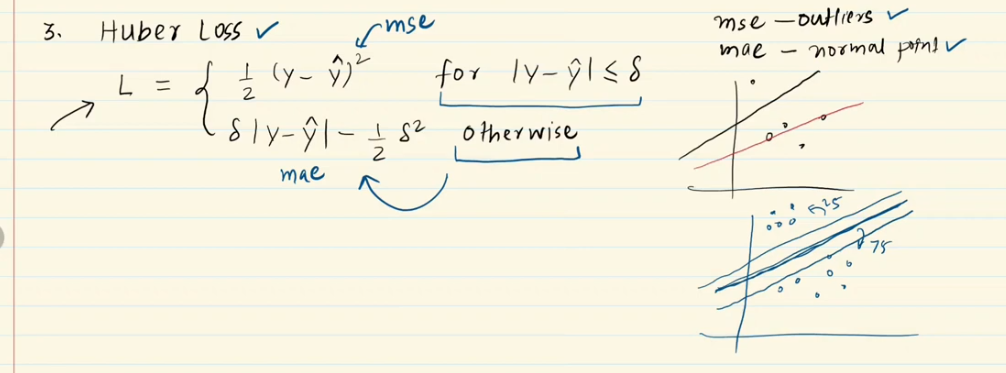 3. Huber Loss ✓
mse
L = { 1/2 (y - ŷ)² for |y - ŷ| ≤ δ
δ |y - ŷ| - 1/2 δ² otherwise
mae
mse — outliers ✓
mae — normal point ✓
25
75